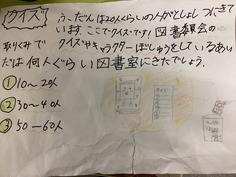 クイズ
ふーだんは20人くらいの人がとしょしつにきて
います。ここでクイズです!図書委員会の
取りくみでクイズやキャラクターぼしゅうをしているあい
だは何人ぐらい図書室にきたでしょう。
①10～20人
②30～40人
③50～60人